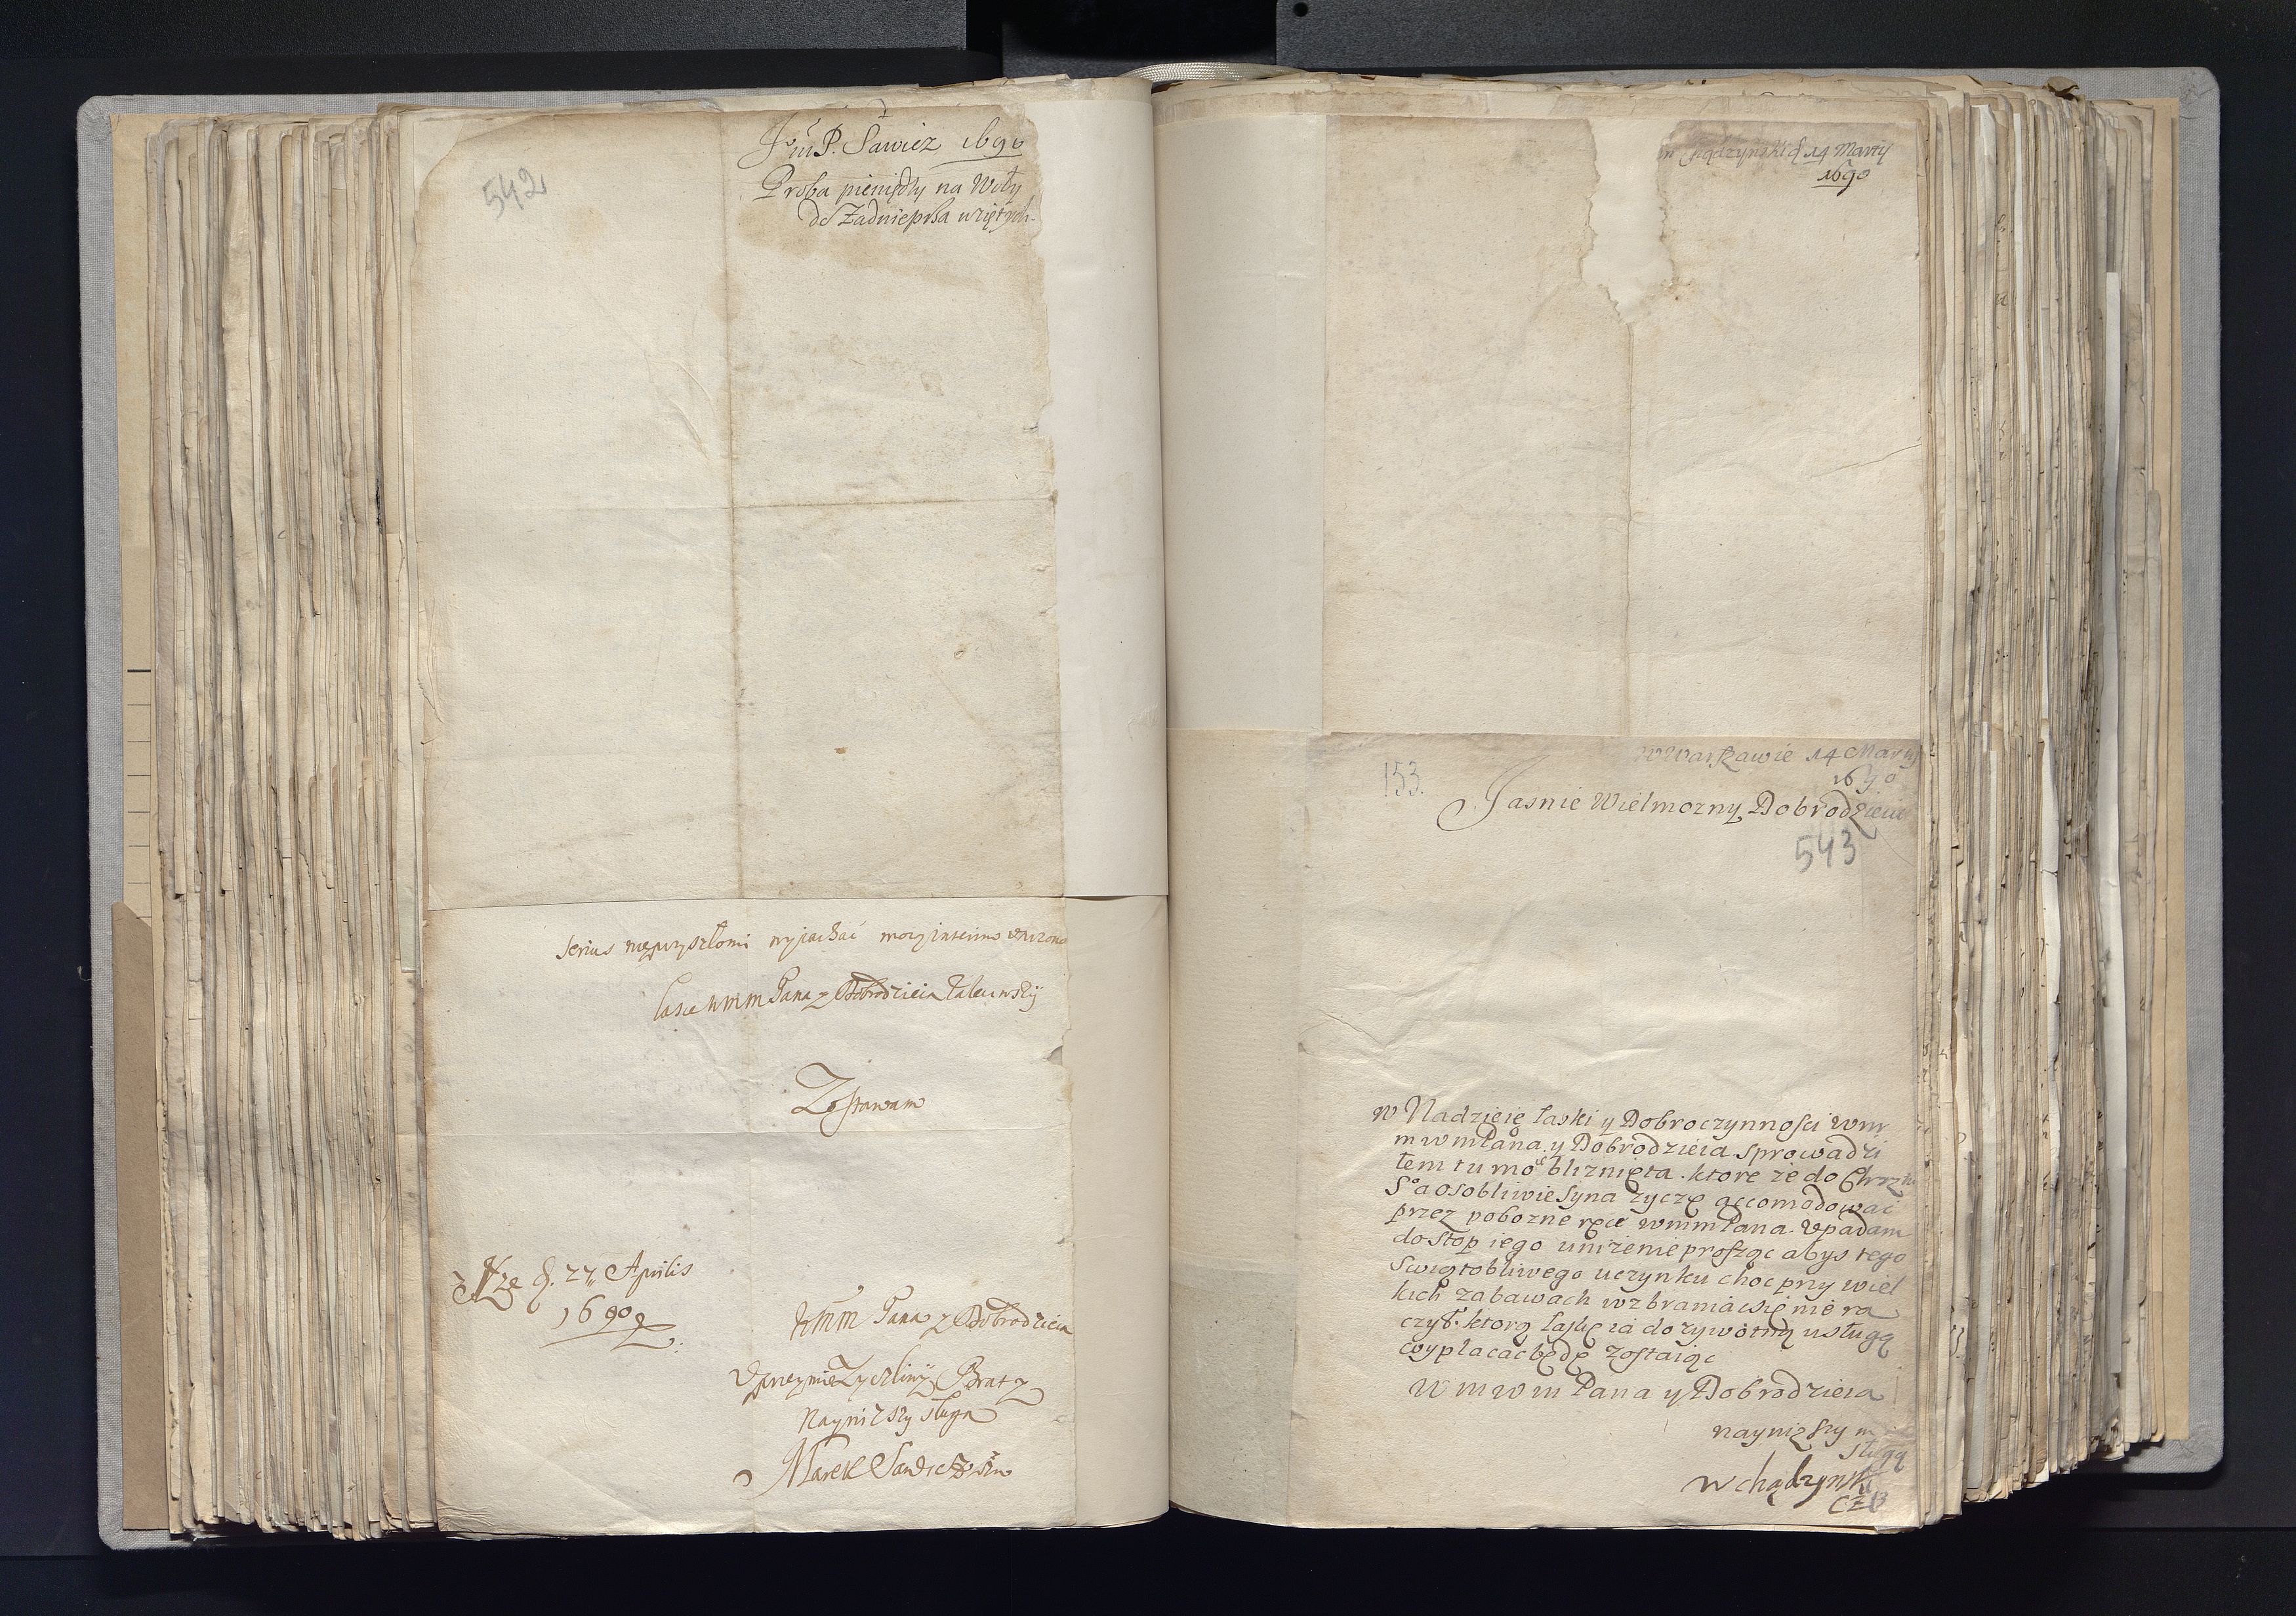 542
P. Sawicz 1690
Proba pieniędzy na Woły
do Zadnieprsa wziętych
wyjachac
łasce WMM Pana y Dobrodzieia
Zostawam
d. 27 Aprilis
1690
WMM Pana y Dobrodzieia
Uprzeymie Zyczliwy Brat y
Nayniższy sługa
Marek
Chądzyński d 14 Marty
1690
w Warszawie 14 Marty
1690
153.
Jasnie Wielmozny Dobrodzieiu
543
w Nadzieię łaski y Dobroczynnosci wm
mwmPana y Dobrodzieia sprowadzi
łem tu moie bliznięta. ktore ze do Chrztu
So a osobliwie syna zyczę accomodowac
przez pobozne ręce wmmPana. Upadam
do stop iego unizenie prosząc abys tego
Swiątobliwego uczynku choc przy wiel
kich zabawach wzbraniac się nie ra
czył. ktorą łaskę ia dozywotnią usługą
wypłacac będę zostaiąc
W m w m Pana y Dobrodzieia
nayniższym
sługą
W Chądzynski